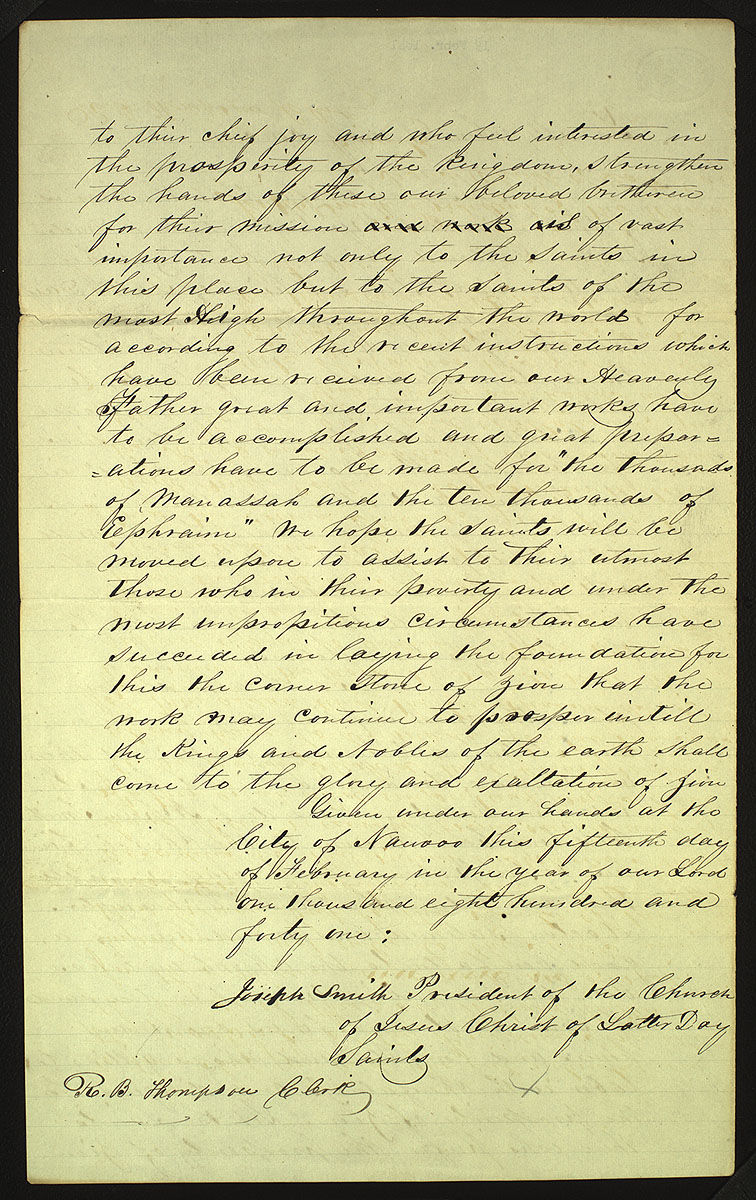 to thier chief joy and who feel interested in
the prosperity of the kingdom, strengthen
the hands of these our beloved bretheren
for thier mission and work is of vast
importance not only to the saints in
this place but to the saints of the
most High throughout the world for
according to the recent instructions which
have been recieved from our Heavenly
Father great and important works have
to be accomplished and great prepar=
=ations have to be made for "the thousads
of Manassah and the ten thousands of
Ephraim" We hope the saints will be
moved upon to assist to their utmost
those who in their poverty and under the
most unpropitious circumstances have
succeeded in laying the foundation for
this the corner stone of zion that the
work may continue to prosper untill
the Kings and Nobles of the earth shall
come to the glory and exaltation of zion
Given under our hands at the
City of Nauvoo this fifteenth day
of February in the year of our Lord
one thousand eight hundred and
forty one:
Joseph Smith President of the Church
of Jesus Christ of Latter Day
Saints
R. B. Thompson Clerk